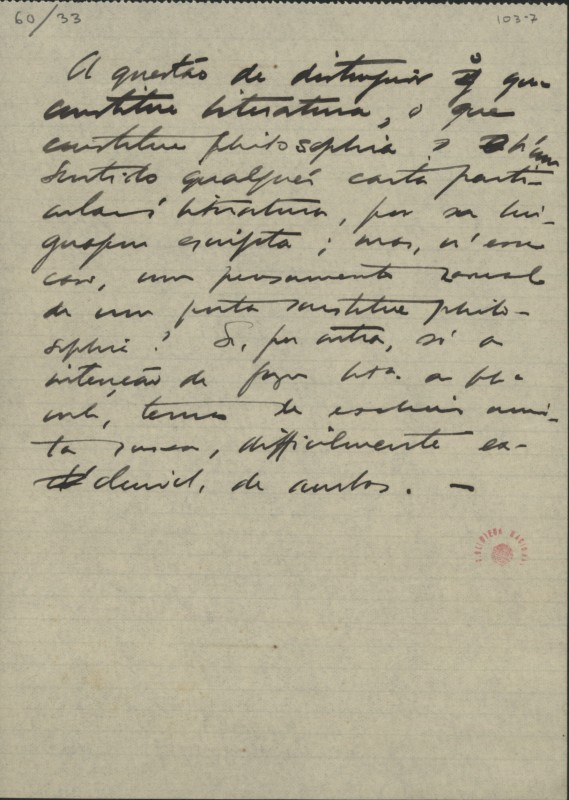 60/33
103-7
A questão de distinguir o que
constitue literatura, o que
constitue philosophia
sentido qualquér carta parti-
cular é literatura, por ser lin-
guagem escripta; mas, n'esse
caso, um pensamento casual
de um poeta constitue philo-
sophia? Se, por outra, só a
intenção de fazer litª. a ph.ª
vale, temos de excluir mui-
ta cousa, difficilmente ex-
cluivel, de ambos. —
BIBLIOTECA NACIONAL